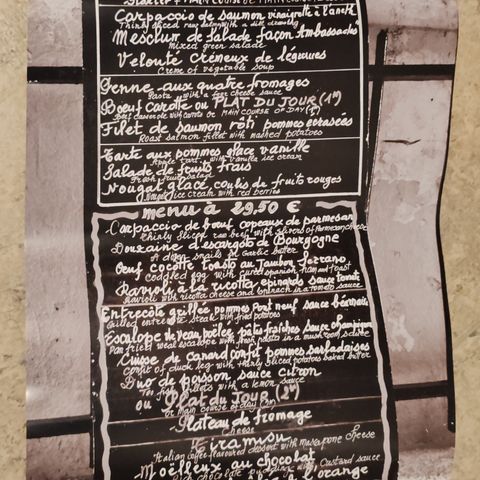 Carpaccio de saumon vinaigrette à l'aneth
Thinly sliced raw salmon with a dill dressing
Mesclun de Salade façon Ambassades
Mixed green salade
Velouté crémeux de légumes
Creme of vegetable soup
Penne aux quatre fromages
Pasta with a four cheese sauce
Boeuf carotte ou PLAT DU JOUR (1er)
MAIN COURSE OF DAY (1st)
Filet de saumon rôti pommes écrasées
Roast salmon fillet with mashed potatoes
Tarte aux pommes glace vanille
Apple tart with vanilla ice cream
Salade de fruits frais
Fresh fruit salad
Nougat glacé, coulis de fruits rouges
Nougat ice cream with red berries
menu à 29,50 €
Carpaccio de boeuf copeaux de parmesan
Thinly sliced raw beef with slivers of Parmesan cheese
Douzaine d'escargots de Bourgogne
A dozen snails in garlic butter
Oeuf cocotte toasts au Jambon Serrano
Coddled egg with cured spanish ham and toast
Ravioli à la ricotta epinards sauce tomate
Ravioli with ricotta cheese and spinach in a tomato sauce
Entrecôte grillée pommes Pont neuf sauce béarnaise
Grilled entrecote steak with fried potatoes
Escalope de veau poêlée, pâtes fraîches sauce champignon
Pan fried veal escalope with fresh pasta in a mushroom sauce
Cuisse de canard confit pommes sarladaises
Confit of duck leg with thinly sliced potatoes baked butter
Duo de poisson sauce citron
Two fish fillets with a lemon sauce
ou Plat du Jour (2nd)
or Main course of day
Plateau de fromage
Cheese
Tiramisu
Italian coffee flavoured dessert with mascapone cheese
Moëlleux au chocolat
Rich chocolate pudding with custard sauce
l'orange